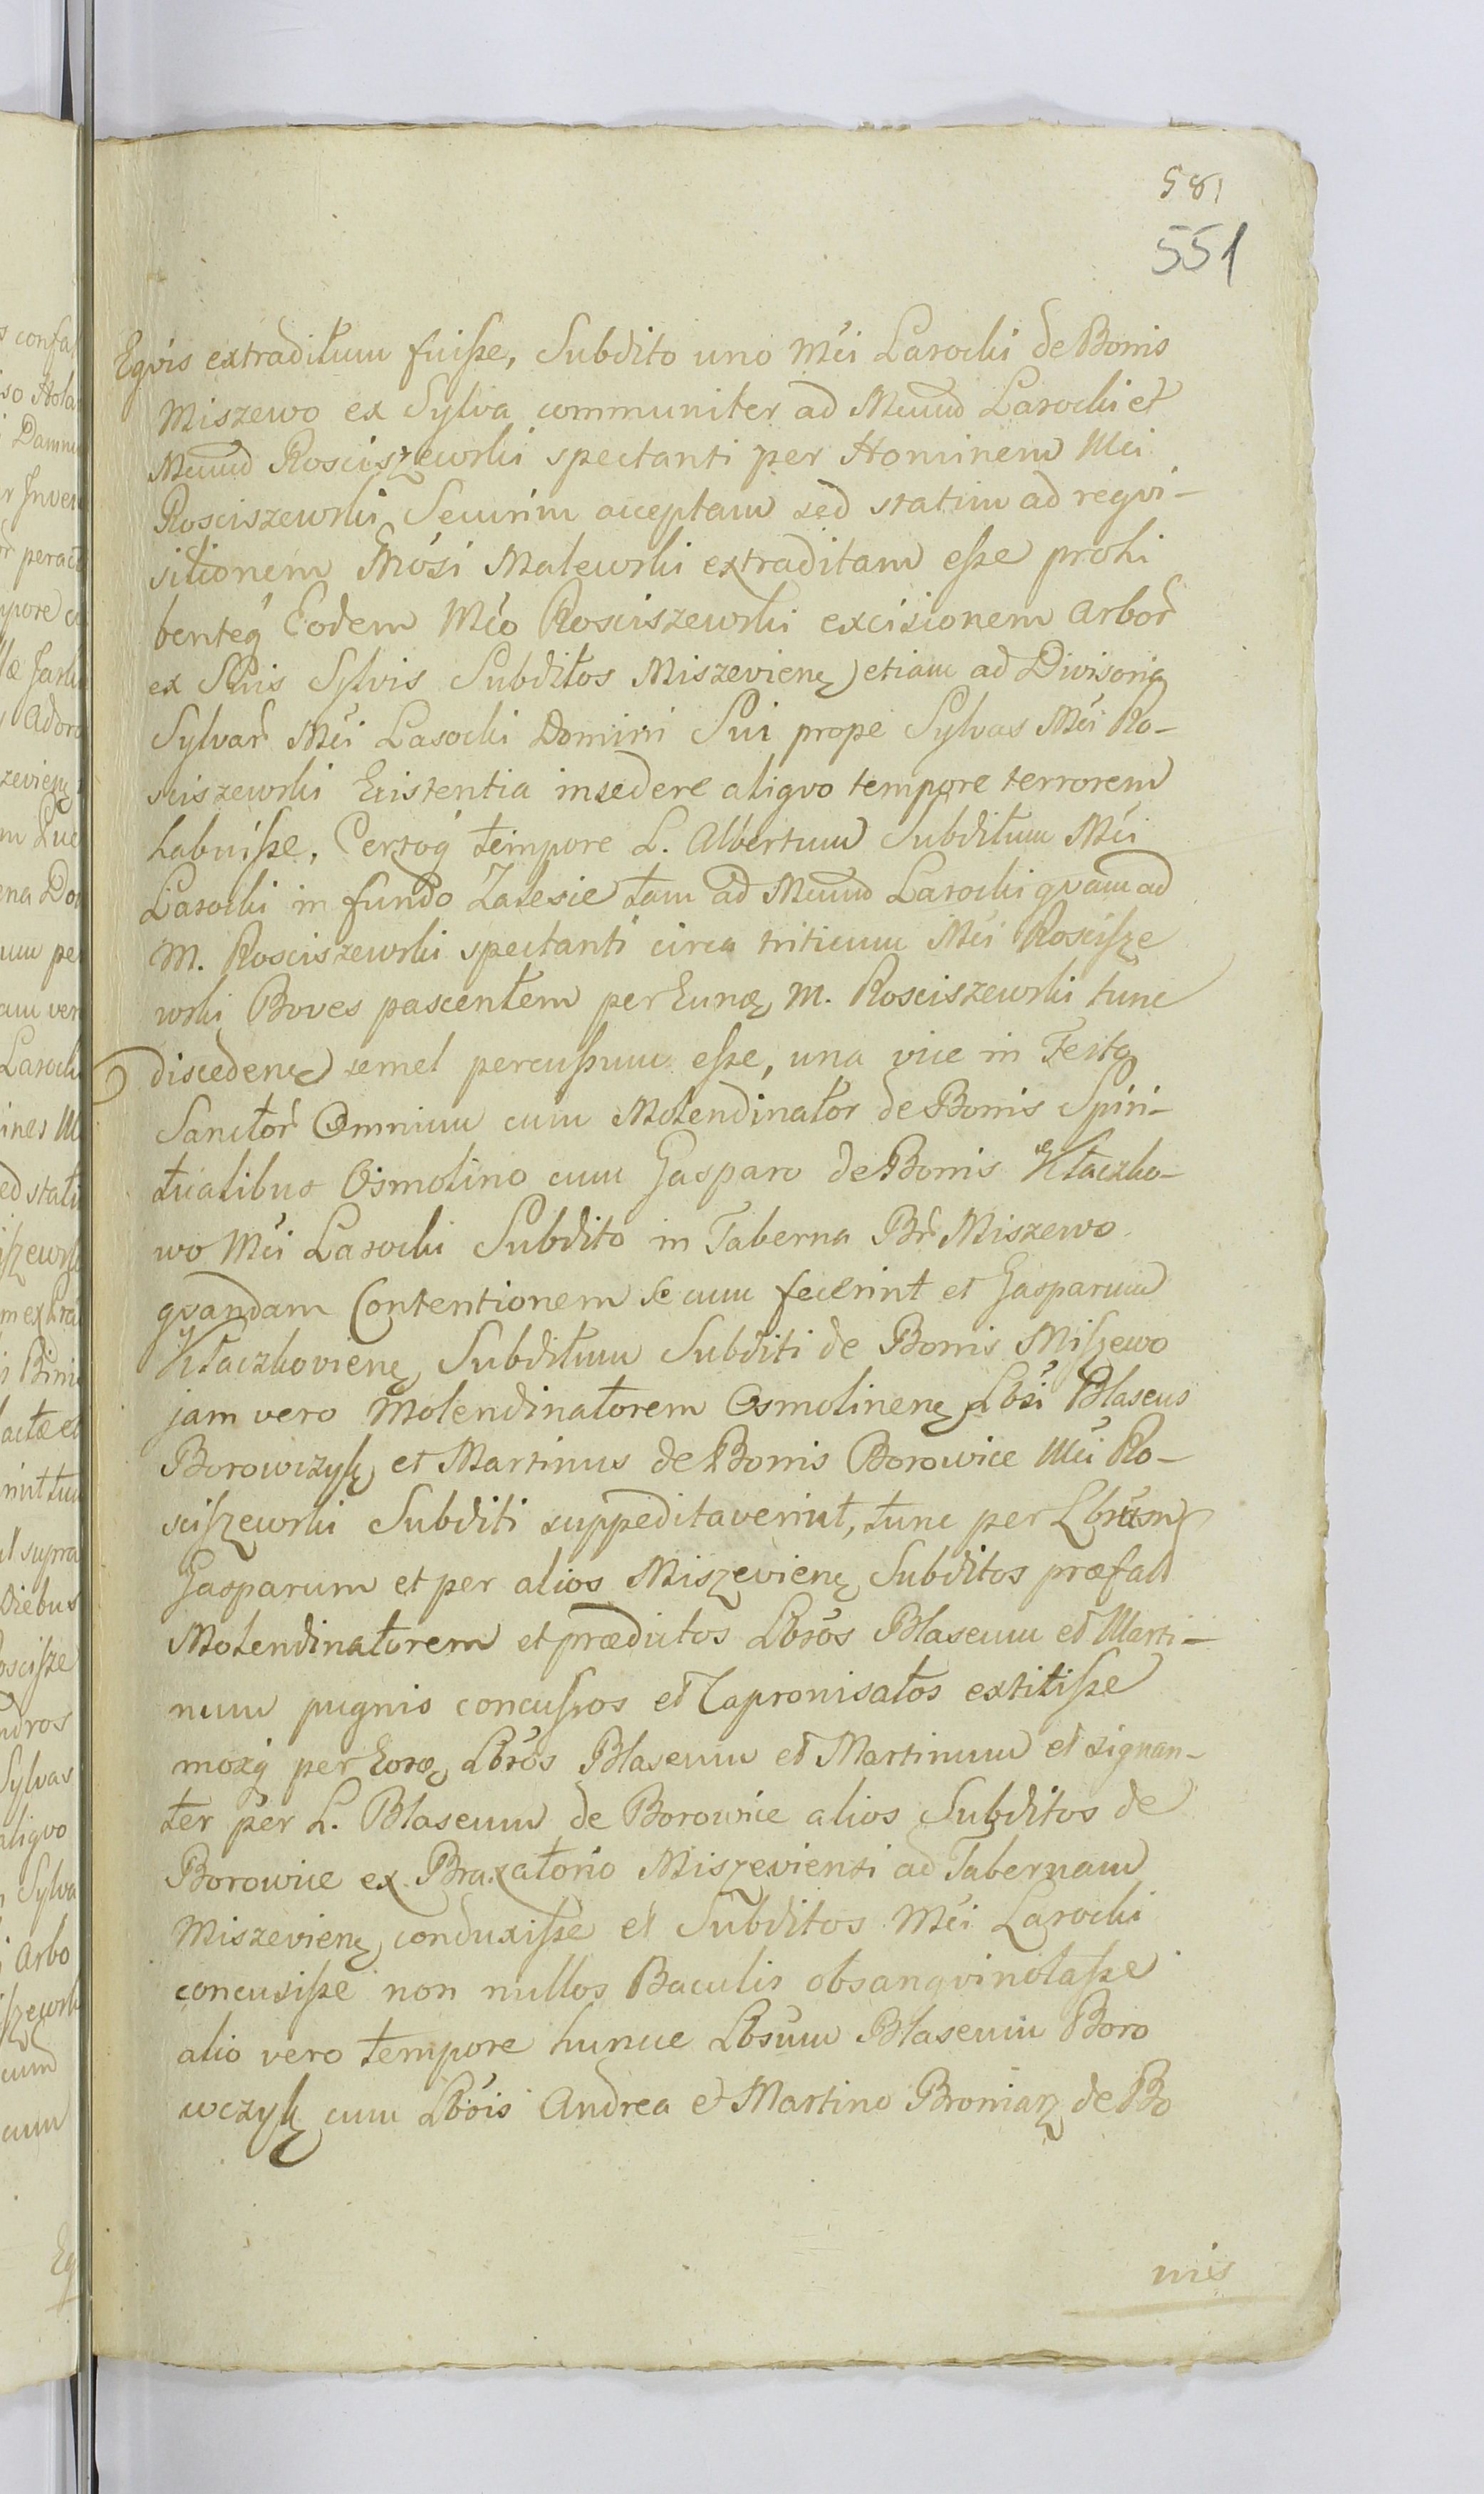 581
551
Eqvis extraditum fuisse, Subdito uno Mci Lasocki de Bonis
Miszewo ex Sylva communiter ad Mcum Lasocki et
Mcum Rosciszewski spectanti per Hominem Mci
Rosciszewski Securim acceptam sed statim ad reqvi-
sitionem Gnosi Malewski extraditam esse prohi
benteq Eodem Mco Rosciszewski excisionem Arbor
ex Suis Sylvis Subditos Miszeviens etiam ad Divisoria
Sylvar Mci Lasocki Domini Sui prope Sylvas Mci Ro-
sciszewski Existentia insedere aliqvo tempore terrorem
habuisse, Certoq tempore L. Albertum Subditum Mci
Lasocki in fundo Zalesie tam ad Mcum Lasocki qvam ad
M. Rosciszewski spectanti circa triticum Mci Roscisze
wski Boves pascentem per Eund M. Rosciszewski tunc
discedene semel percussum esse, una vice in Festo
Sanctor Omnium cum Molendinator de Bonis Spiri-
tualibus Osmolino cum Gasparo de Bonis Kłaczko-
wo Mci Lasocki Subdito in Taberna Br Miszewo
qvandam Contentionem secum fecerint et Gasparum
Kłaczkoviens Subditum Subditi de Bonis Miszewo
jam vero Molendinatorem Osmolinens Lbsi Blaseus
Borowczyk et Martinus de Bonis Borowice Mci Ro-
sciszewski Subditi suppeditaverint, tunc per Lbrum
Gasparum et per alios Miszeviens Subditos præfat
Molendinatorem et prædictos Lbros Blaseum et Marti-
num pugnis concussos et Zapronisatos extitisse
moxq per Eosd Lbros Blaseum et Martinum et signan-
ter per L. Blaseum de Borowice alios Subditos de
Borowice ex Braxatorio Miszeviensi ad Tabernam
Miszeviens conduxisse et Subditos Mci Lasocki
concussisse non nullos Baculis obsangvinolasse
alio vero tempore hunce Lbsum Blaseum Boro
wczyk cum Lbois Andrea et Martino Broniarz de Bo
nis